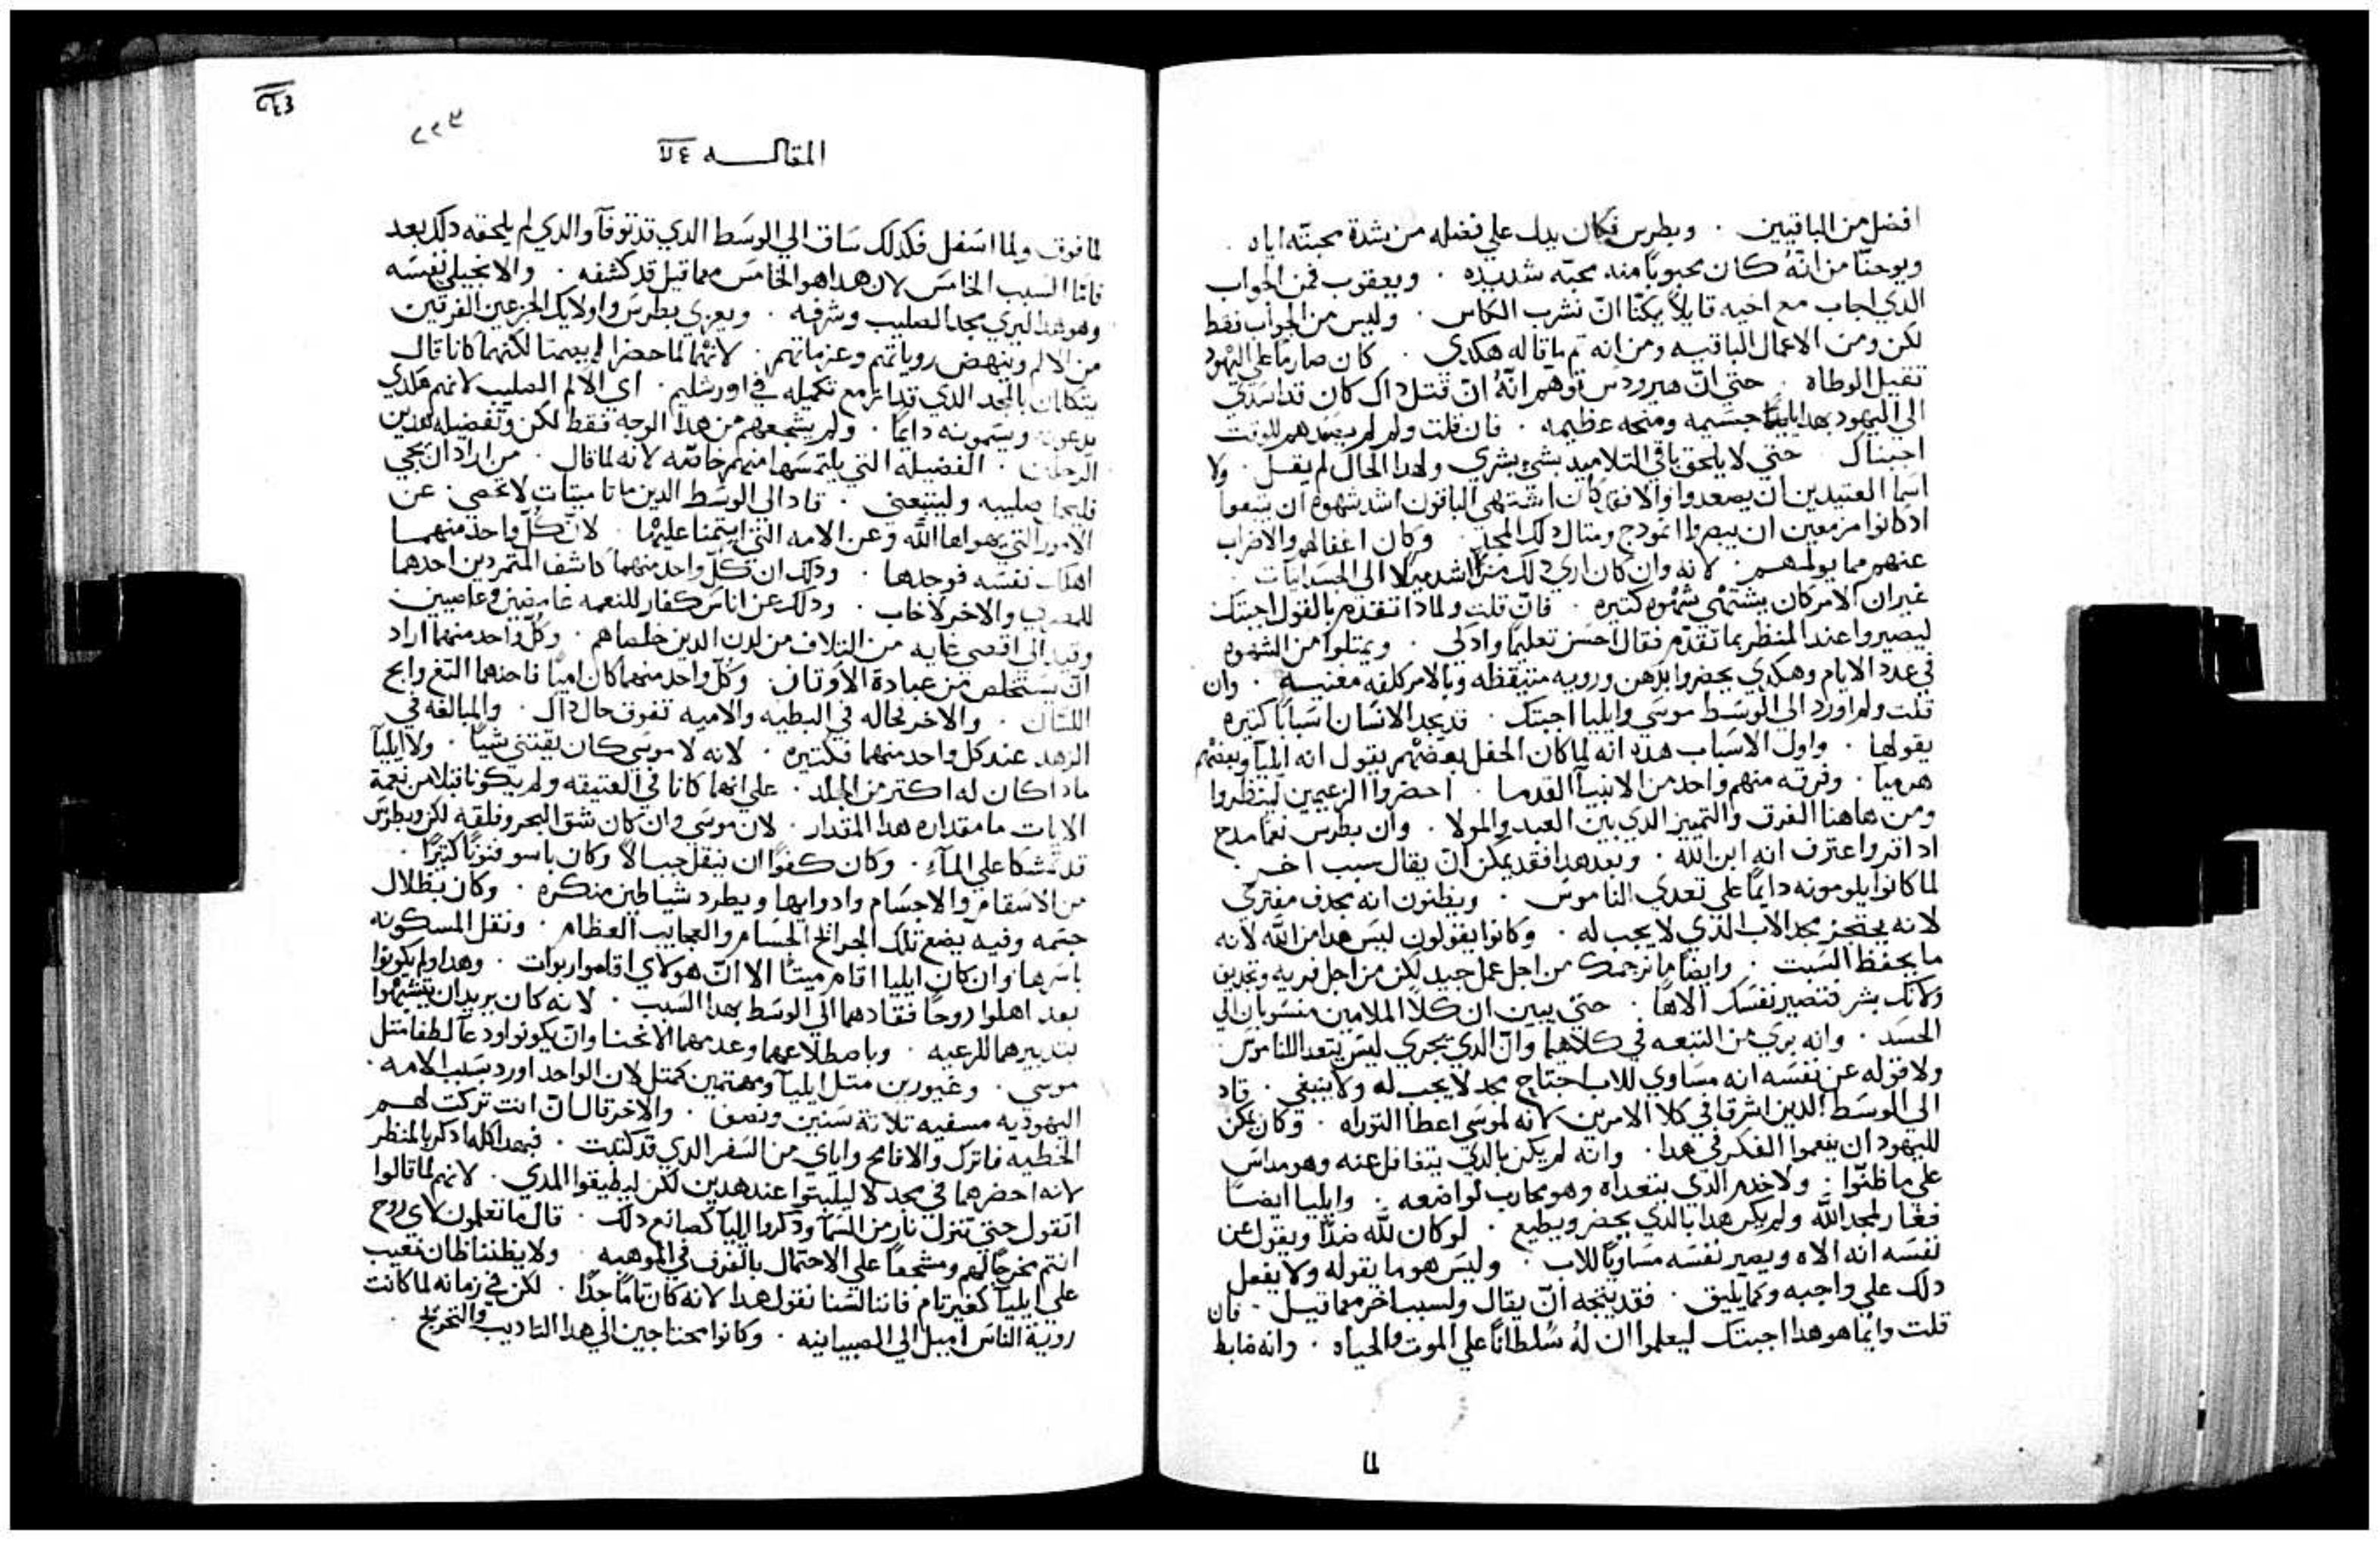 افضل من الباقيين . وبطرس فكان يدل علي فضله من شدة محبته اياه .
ويوحنا من انهُ كان محبوباً منه محبه شديده . ويعقوب فمن الجواب
الذي اجاب مع اخيه قايلاً يمكننا ان نشرب الكاس . وليس من الجواب فقط
لكن ومن الاعمال الباقيه ومن انه تم ما قاله هكذي . كان صارماً علي اليهود
تقيل الوطاه . حتي ان هيرودس توهم انهُ ان قتل داك كان قد اسدي
الي اليهود بهدا جسيمه ومنحه عظيمه . فان قلت ولم لم يصعدهم للوقت
اجبناك حتي لا يلحق باقي التلاميد بشي بشري ولهدا الحال لم يقل . ولا
اسما العتيدين ان يصعدوا والا فقد كان اشتهي الباقون اشد شهوه ان يتبعوا
اد كانوا مزمعين ان يبصروا انمودج ومتال دلك المجد . وكان اغفالهم والاضراب
عنهم مما يولمهم . لانه وان كان اري دلك اشد ميلا الي الجسدانيات .
غير ان الامر كان يشتهي شهوه كتيره . فان قلت ولمادا تقدم بالقول اجبتك
ليصيروا عند المنظر بما تقدم فقال احسن تعليماً وادكي . ويمتلوا من الشهوه
في عدد الايام وهكدي يحضروا بدهن ورويه متيقظه وبالامر كلفه معنيه . وان
قلت ولم اورد الي الوسط موسي وايليا اجبتك . قد يجد الانسان اسباباً كتيره
يقولها . واول الاسباب هده انه لما كان الحفل بعضهم يقول انه ايليا وبعضهم
هرميا . وفرقه منهم واحد من الانبيا القدما . احضروا الزعيمين لينظروا
ومن هاهنا الفرق والتمييز الدي بين العبد والمولا . وان بطرس نعما مدح
اد اقر واعترف انه ابن الله . وبعد هدا فقد يمكن ان يقال سبب اخر .
لما كانوا يلومونه دايماً علي تعدي الناموس . ويظنون انه يجدف مفتري
لانه يحتجز مجد الاب الدي لا يجب له . وكانوا يقولون ليس هدا من الله لانه
ما يحفظ السبت . وايضاً ما نرجمك من اجل عمل جيد لكن من اجل فريه وتجدين
ولانك بشر فتصير نفسك الاهاً . حتي يبين ان كلا الملامين منسوبان الي
الحسد . وانه بري من التبعه في كلاهما وان الدي يجري ليس يتعدا للناموس
ولا قوله عن نفسه انه مساوي للاب اجتاح مجد لا يجب له ولا ينبغي . قاد
الي الوسط الدين اشرقا في كلا الامرين لانه لموسي اعطا التوراه . وكان يمكن
لليهود ان ينعموا الفكر في هدا . وانه لم يكن بالدي يتغافل عنه وهو مداس
علي ما ظنوا . ولا خدم الدي يتعداه وهو محارب لواضعه . وايليا ايضاً
فغار لمجد الله ولم يكن هدا بالدي يحضر ويطيع . لو كان لله ضداً ويقول عن
نفسه انه الاه ويصير نفسه مساوياً للاب . وليس هو ما يقوله ولا يفعل
دلك علي واجبه وكما يليق . فقد يتجه ان يقال ولسبب اخر مما قيل . فان
قلت وايما هو هدا اجبتك ليعلموا ان لهُ سُلطاناً علي الموت والحياه . وانه ضابط
لما
المقاله
لما فوق ولما اسفل فكدلك ساق الي الوسط الدي قد توفا والدي لم يلحقه دلك بعد
فاما السبب الخامس لان هدا هو الخامس مما قيل قد كشفه . والانجيلي نفسه
وهو هدا ليري مجد الصليب وشرفه . ويعزي بطرس واولايك الجزعين الفرقين
من الالم وينهض روياتهم وعزماتهم . لانهما لما حضرا لم يصمتا لكنهما كانا قال
يتكلمان بالمجد الدي قد ازمع تكميله في اورشليم . اي الالم الصليب لانهم هكدي
يدعونه ويسمونه دايماً . ولم يشجعهم من هدا الوجه فقط لكن وتفضيله لهدين
الرجلين . الفضيله التي يلتمسها منهم خاصه لانه لما قال . من اراد ان يجي
فليحمل صليبه وليتبعني . قاد الي الوسط الدين ماتا ميتات لا تحصي . عن
الامور التي يهواها الله وعن الامه التي ايتمنا عليها . لان كل واحد منهما
اهلك نفسه فوجدها . ودلك ان كل واحد منهما كاشف المتمردين احدهما
للمصري والاخر لاخاب . ودلك عن اناس كفار للنعمه غامضين وعاصيين
وقيد الي اقصي غايه من التلاف من لدن الدين خلصاهم . وكل واحد منهما اراد
ان يستخلص من عبادة الاوتان . وكل واحد منهما كان امياً فاحدهما التغ وابح
اللسان . والاخر فحاله في البطيه والاميه تفوق حال داك . والمبالغه في
الزهد عند كل واحد منهما فكتيره . لانه لا موسي كان يقتني شياً . ولا ايليا
مادا كان له اكتر من الجلد . علي انهما كانا في العتيقه ولم يكونا قبلا من نعمة
الايات ما مقداره هدا المقدار . لان موسي وان كان شق البحر وفلقه لكن وبطرس
قد تمشا علي الماء . وكان كفواً ان ينقل جبالاً وكان ياسو فنوناً كتيراً .
من الاسقام والاجسام وادوايها ويطرد شياطين منكره . وكان بظلال
جتمه وفيه يضع تلك الجرايح الجسام والعجايب العظام . ونقل المسكونه
باسرها وان كان ايليا اقام ميتاً الا ان هولاي اقاموا ربوات . وهدا ولم يكونوا
بعد اهلوا روحاً فقادهما الي الوسط بهدا السبب . لانه كان يريد ان يتشبهوا
بتدبيرهما للرعيه . وباصطلاعهما وعدمهما الانحنا وان يكونوا ودعا لطفا متل
موسي . وغيورين متل ايليا ومهتمين كمتل لان الواحد اورد بسبب الامه .
اليهوديه مسغبه تلاتة سنين ونصف . والاخر قال ان انت تركت لهم
الخطيه فاترك والا فامح واياي من السفر الدي قد كتبت . فبهدا كله ادكر بالمنظر
لانه احضرهما في مجد لا ليلبتوا عند هدين لكن ليطيقوا المدي . لانهم لما قالوا
اتقول حتي تنزل نار من السما ودكروا ايليا كصانع دلك . قال ما تعلمون لاي روح
انتم مخرجاً لهم ومشجعاً علي الاحتمال بالفرق في الموهبه . ولا يظننا ظان نعيب
علي ايليا كغير تام فاننا لسنا نقول هدا لانه كان تاماً جداً . لكن في زمانه لما كانت
روية الناس اميل الي الصبيانيه . وكانوا محتاجين الي هدا التاديب والتخريج .